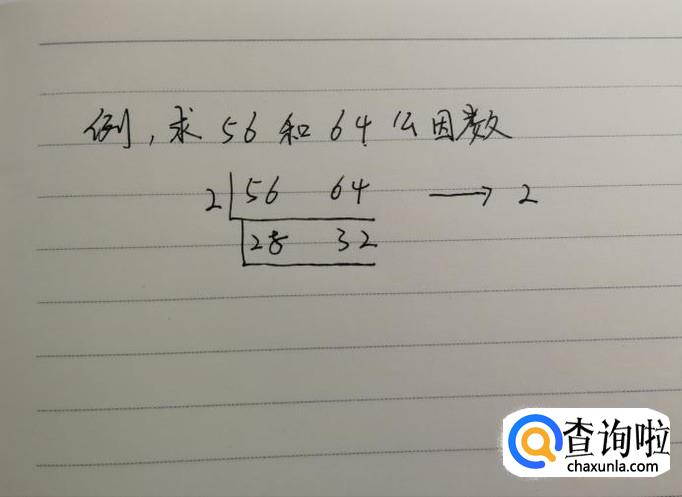 例,求 56 和 64 公因数
2 56 64 → 2
28 32
查询啦
chaxunla.com